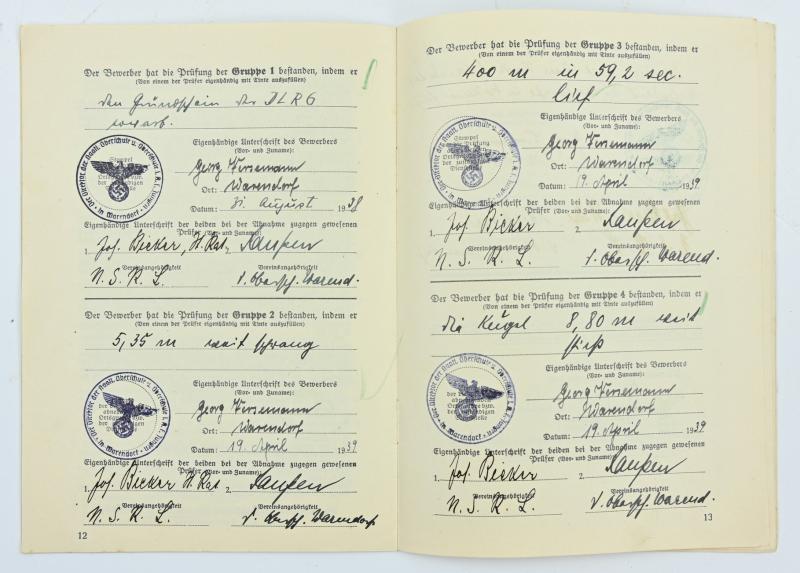 Der Bewerber hat die Prüfung der Gruppe 1 bestanden, indem er
(Von einem der Prüfer eigenhändig mit Tinte auszufüllen)
den Grundschein der DLRG
erwarb.
Der Direktor der Staatl. Oberschule u. Oberschule i. A. f. Jungen
in Warendorf
Stempel
Eigenhändige Unterschrift des Bewerbers
(Vor- und Zuname):
Georg
Ort: Warendorf
Datum: 31 August 1938
Eigenhändige Unterschrift der beiden bei der Abnahme zugegen gewesenen
Prüfer (Vor- und Zuname):
1. Jos. Bicker, St. Rat, 2.
Vereinsangehörigkeit Vereinsangehörigkeit
N. S. R. L. d. Obersch. Warend.
Der Bewerber hat die Prüfung der Gruppe 2 bestanden, indem er
(Von einem der Prüfer eigenhändig mit Tinte auszufüllen)
5,35 m weit sprang
Der Direktor der Staatl. Oberschule u. Oberschule i. A. f. Jungen
in Warendorf
Eigenhändige Unterschrift des Bewerbers
(Vor- und Zuname):
Georg
Ort: Warendorf
Datum: 19. April 1939
Eigenhändige Unterschrift der beiden bei der Abnahme zugegen gewesenen
Prüfer (Vor- und Zuname):
1. Jos. Bicker St. Rat 2.
Vereinsangehörigkeit Vereinsangehörigkeit
N. S. R. L. d. Obersch. Warendorf
12
Der Bewerber hat die Prüfung der Gruppe 3 bestanden, indem er
(Von einem der Prüfer eigenhändig mit Tinte auszufüllen)
400 m in 59,2 sec.
lief
Der Direktor der Staatl. Oberschule u. Oberschule i. A. f. Jungen
in Warendorf
Stempel
Eigenhändige Unterschrift des Bewerbers
(Vor- und Zuname):
Georg
Ort: Warendorf
Datum: 19. April 1939
Eigenhändige Unterschrift der beiden bei der Abnahme zugegen gewesenen
Prüfer (Vor- und Zuname):
1. Jos. Bicker 2.
Vereinsangehörigkeit Vereinsangehörigkeit
N. S. R. L. d. Obersch. Warend.
Der Bewerber hat die Prüfung der Gruppe 4 bestanden, indem er
(Von einem der Prüfer eigenhändig mit Tinte auszufüllen)
die Kugel 8,80 m weit
stieß
Der Direktor der Staatl. Oberschule u. Oberschule i. A. f. Jungen
in Warendorf
Eigenhändige Unterschrift des Bewerbers
(Vor- und Zuname):
Georg
Ort: Warendorf
Datum: 19. April 1939
Eigenhändige Unterschrift der beiden bei der Abnahme zugegen gewesenen
Prüfer (Vor- und Zuname):
1. Jos. Bicker 2.
Vereinsangehörigkeit Vereinsangehörigkeit
N. S. R. L. d. Obersch. Warend.
13